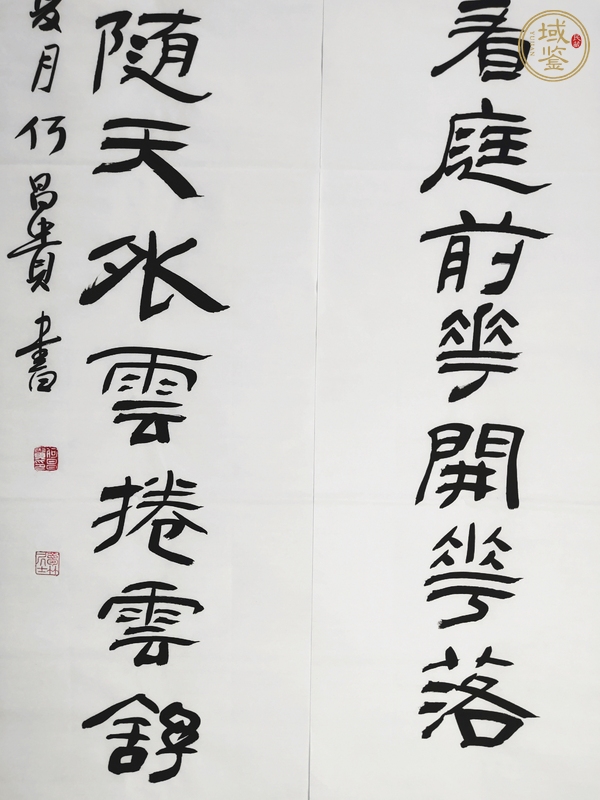 看庭前花開花落
随天外雲捲雲舒
月何昌貴書
域鉴